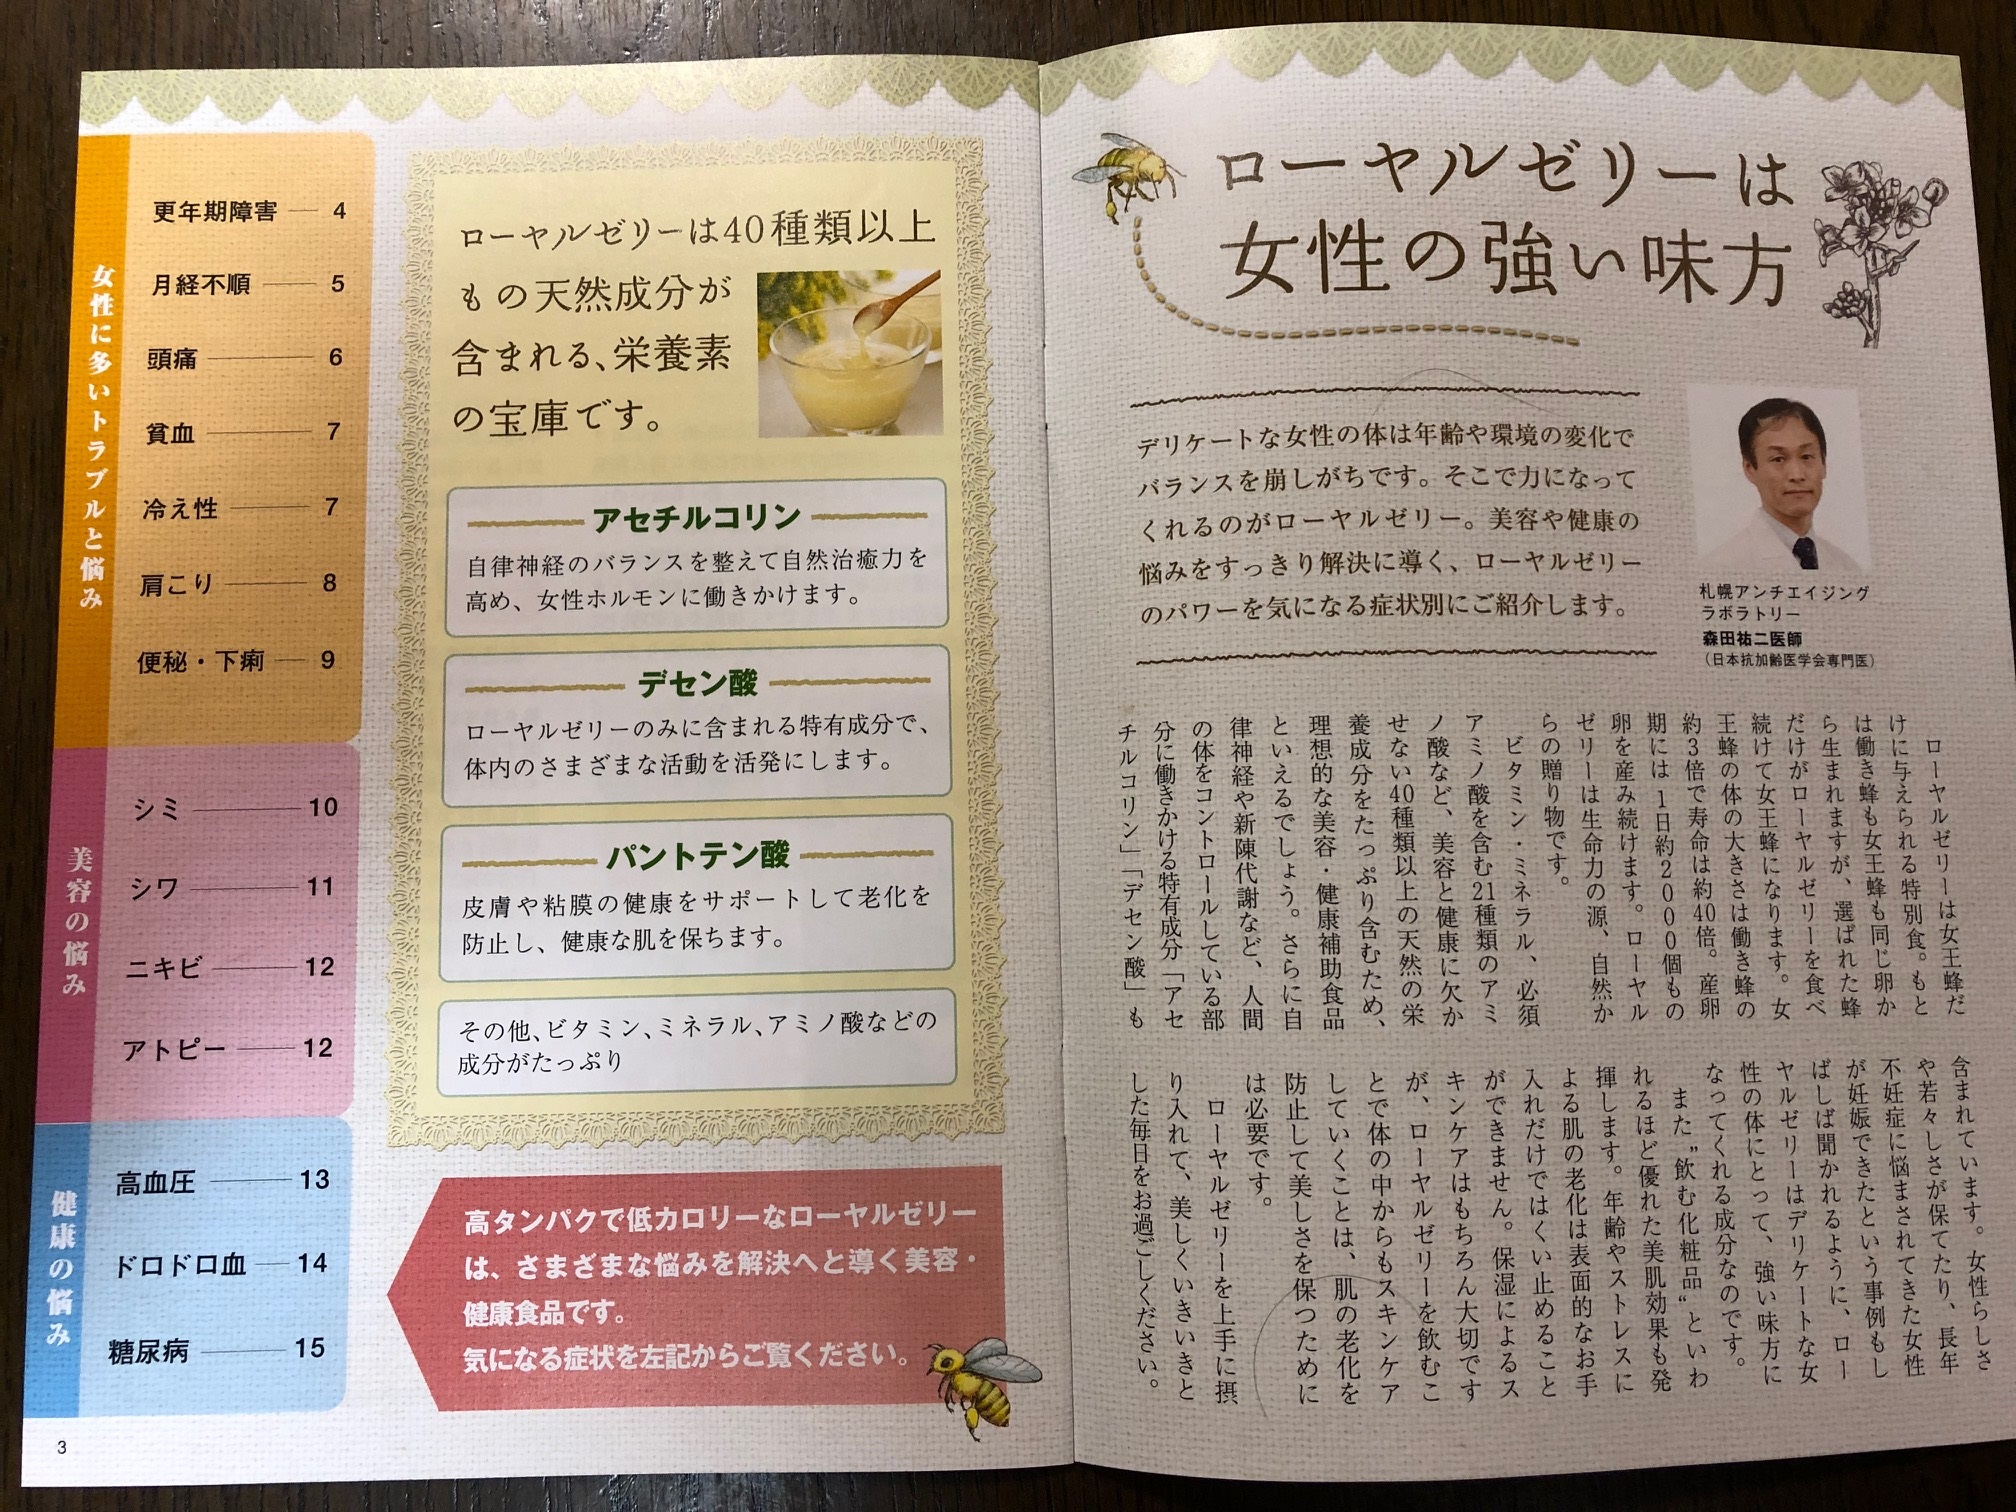 ローヤルゼリーは
女性の強い味方
デリケートな女性の体は年齢や環境の変化で
バランスを崩しがちです。そこで力になって
くれるのがローヤルゼリー。美容や健康の
悩みをすっきり解決に導く、ローヤルゼリー
のパワーを気になる症状別にご紹介します。
札幌アンチエイジング
ラボラトリー
森田祐二医師
（日本抗加齢医学会専門医）
ローヤルゼリーは女王蜂だ
けに与えられる特別食。もと
は働き蜂も女王蜂も同じ卵か
ら生まれますが、選ばれた蜂
だけがローヤルゼリーを食べ
続けて女王蜂になります。女
王蜂の体の大きさは働き蜂の
約3倍で寿命は約40倍。産卵
期には1日約2000個もの
卵を産み続けます。ローヤル
ゼリーは生命力の源、自然か
らの贈り物です。
ビタミン・ミネラル、必須
アミノ酸を含む21種類のアミ
ノ酸など、美容と健康に欠か
せない40種類以上の天然の栄
養成分をたっぷり含むため、
理想的な美容・健康補助食品
といえるでしょう。さらに自
律神経や新陳代謝など、人間
の体をコントロールしている部
分に働きかける特有成分「アセ
チルコリン」「デセン酸」も
含まれています。女性らしさ
や若々しさが保てたり、長年
不妊症に悩まされてきた女性
が妊娠できたという事例もし
ばしば聞かれるように、ロー
ヤルゼリーはデリケートな女
性の体にとって、強い味方に
なってくれる成分なのです。
また〝飲む化粧品〟といわ
れるほど優れた美肌効果も発
揮します。年齢やストレスに
よる肌の老化は表面的なお手
入れだけではくい止めること
ができません。保湿によるス
キンケアはもちろん大切です
が、ローヤルゼリーを飲むこ
とで体の中からもスキンケア
していくことは、肌の老化を
防止して美しさを保つために
は必要です。
ローヤルゼリーを上手に摂
り入れて、美しくいきいきと
した毎日をお過ごしください。
ローヤルゼリーは40種類以上
もの天然成分が
含まれる、栄養素
の宝庫です。
アセチルコリン
自律神経のバランスを整えて自然治癒力を
高め、女性ホルモンに働きかけます。
デセン酸
ローヤルゼリーのみに含まれる特有成分で、
体内のさまざまな活動を活発にします。
パントテン酸
皮膚や粘膜の健康をサポートして老化を
防止し、健康な肌を保ちます。
その他、ビタミン、ミネラル、アミノ酸などの
成分がたっぷり
高タンパクで低カロリーなローヤルゼリー
は、さまざまな悩みを解決へと導く美容・
健康食品です。
気になる症状を左記からご覧ください。
女性に多いトラブルと悩み
更年期障害 4
月経不順 5
頭痛 6
貧血 7
冷え性 7
肩こり 8
便秘・下痢 9
美容の悩み
シミ 10
シワ 11
ニキビ 12
アトピー 12
健康の悩み
高血圧 13
ドロドロ血 14
糖尿病 15
3